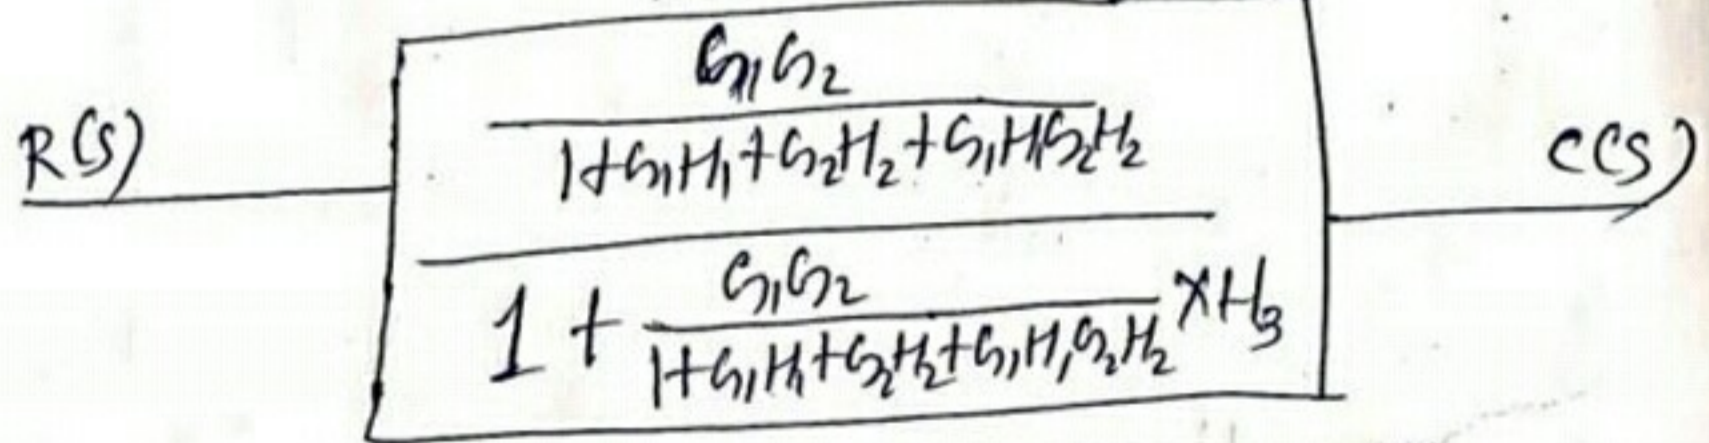 R(S)
G₁G₂
1+G₁H₁+G₂H₂+G₁H₁G₂H₂
C(S)
1 + G₁G₂
1+G₁H₁+G₂H₂+G₁H₁G₂H₂ ×H₃